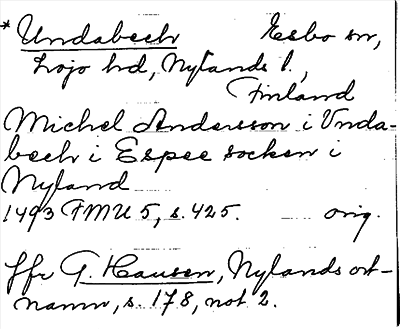 * Undabech Esbo sn,
Lojo hd, Nylands l.,
Finland
Michel Andersson i Unda-
bech i Espee socken i
Nyland
1493 FMU 5, s. 425. orig.
Jfr G. Hausen, Nylands ort-
namn, s. 178, not 2.